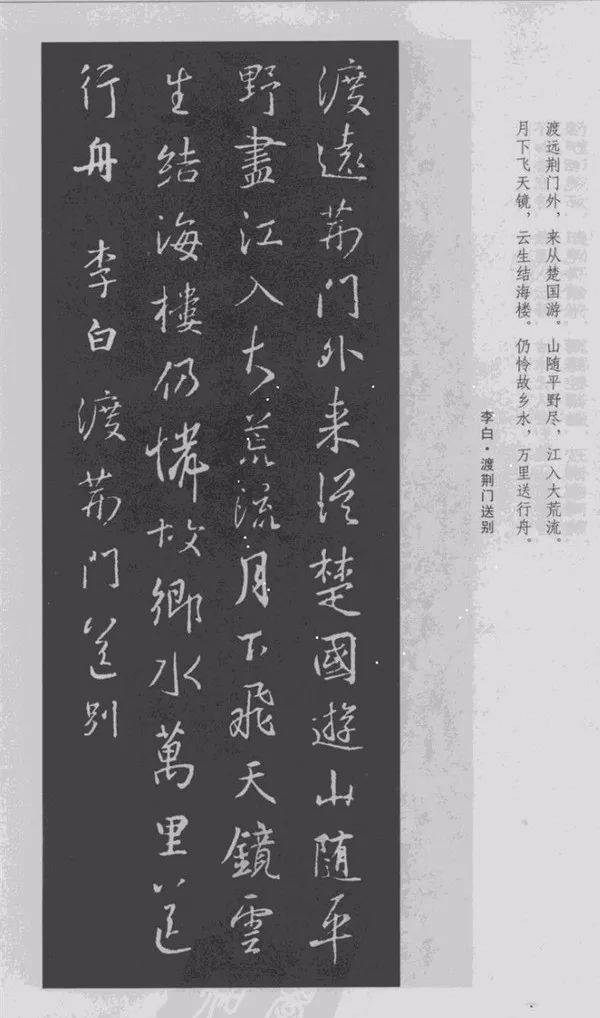 渡远荆门外，来从楚国游。山随平野尽，江入大荒流。
月下飞天镜，云生结海楼。仍怜故乡水，万里送行舟。
李白·渡荆门送别
渡遠荊門外来從楚國遊山随平
野盡江入大荒流月下飛天鏡雲
生結海樓仍憐故鄉水萬里送
行舟 李白渡荊門送别